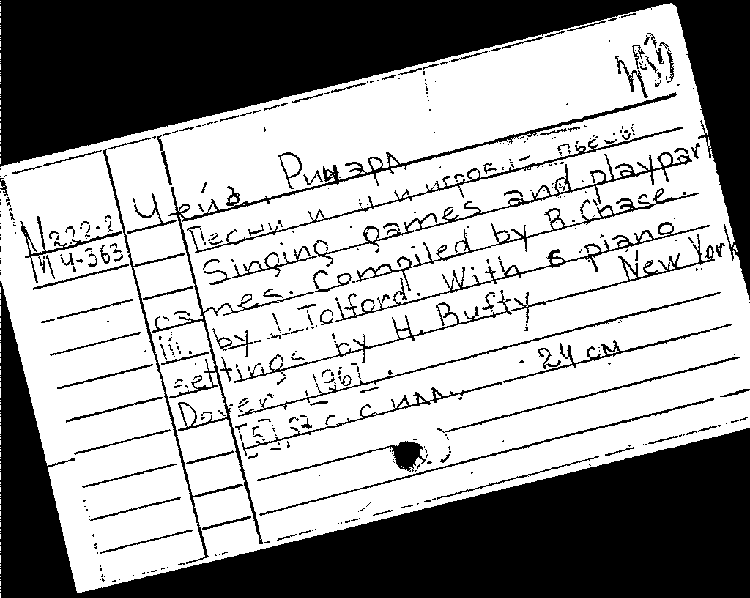 Чейз, Ричард
М222.2
М4-363
Песни и и игровы- пьесы
Singing games and playpart
games. Compiled by R. Chase.
ill. by J. Tolford. With 6 piano
settings by H. Bufty New York
Dover, 1967.
[5], 57 с. с илл., 24 см